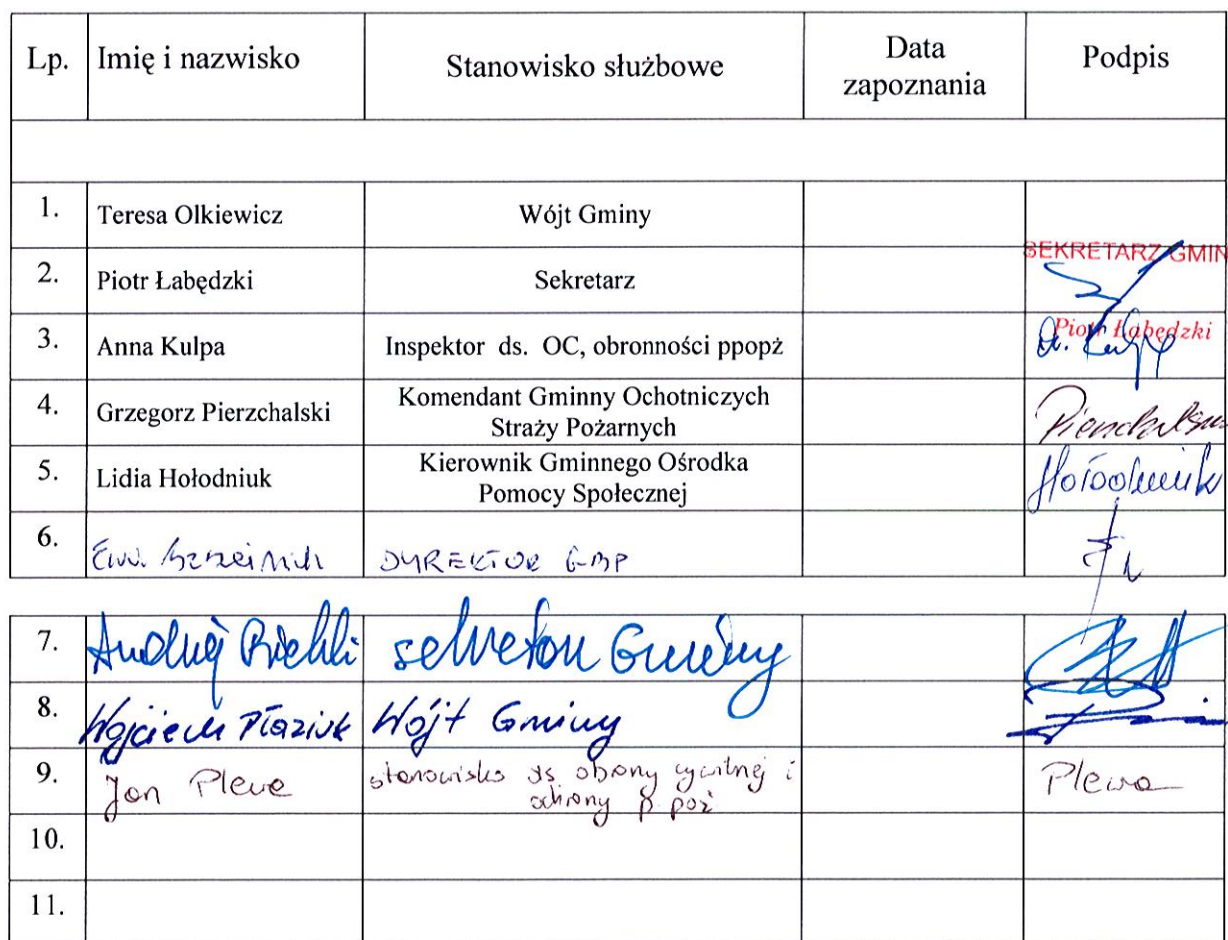 Lp. Imię i nazwisko Stanowisko służbowe Data zapoznania Podpis
1. Teresa Olkiewicz Wójt Gminy
SEKRETARZ GMIN
2. Piotr Łabędzki Sekretarz
Piotr Łabędzki
3. Anna Kulpa Inspektor ds. OC, obronności ppopż A. Kulpa
4. Grzegorz Pierzchalski Komendant Gminny Ochotniczych
Straży Pożarnych
5. Lidia Hołodniuk Kierownik Gminnego Ośrodka
Pomocy Społecznej Hołodniuk
6. Ewa DYREKTOR GBP
7. Andrzej sekretarz Gminy
8. Wojciech Płaziuk Wójt Gminy
9. Jan Plewa stanowisko ds obrony cywilnej i
ochrony p. poż Plewa
10.
11.